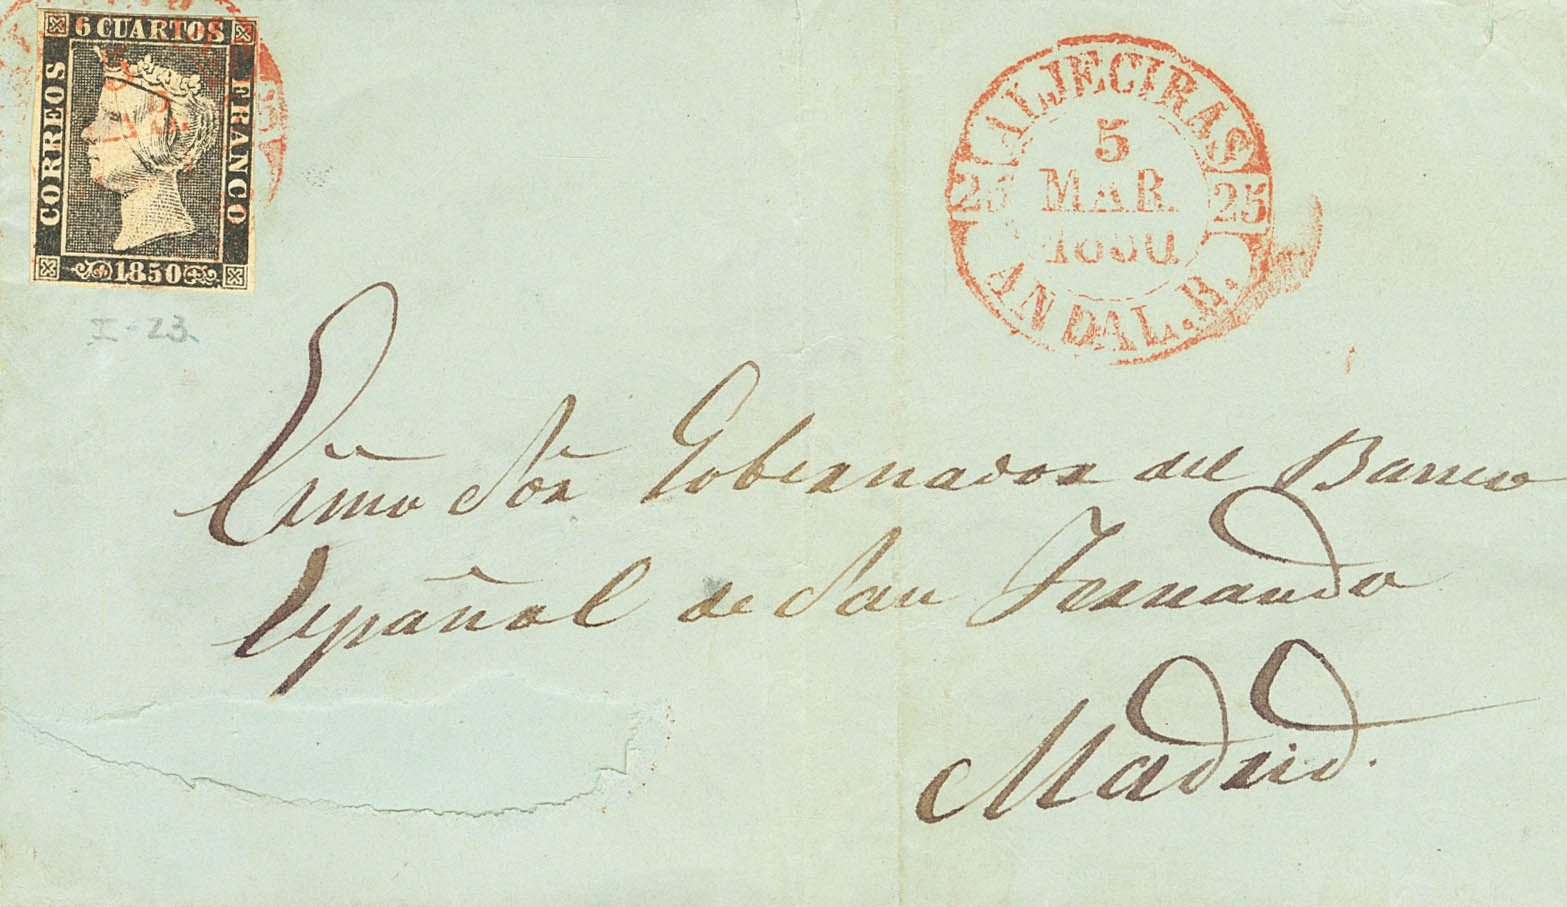 6 CUARTOS
CORREOS
FRANCO
1850
I-23
ALJECIRAS
5
25 MAR. 25
1850
ANDAL.B.
Exmo Sōr Gobernador del Banco
Español de San Fernando
Madrid.